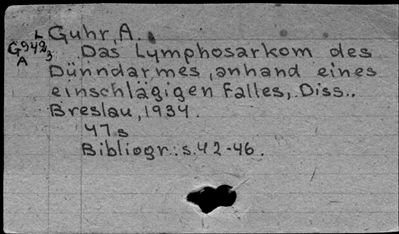 L Guhr, A.
G942 Das Lymphosarkom des
A 3
Dünndarmes, anhand eines
einschlägigen Falles, Diss..
Breslau, 1934.
47s
Bibliogr.: s.42-46.